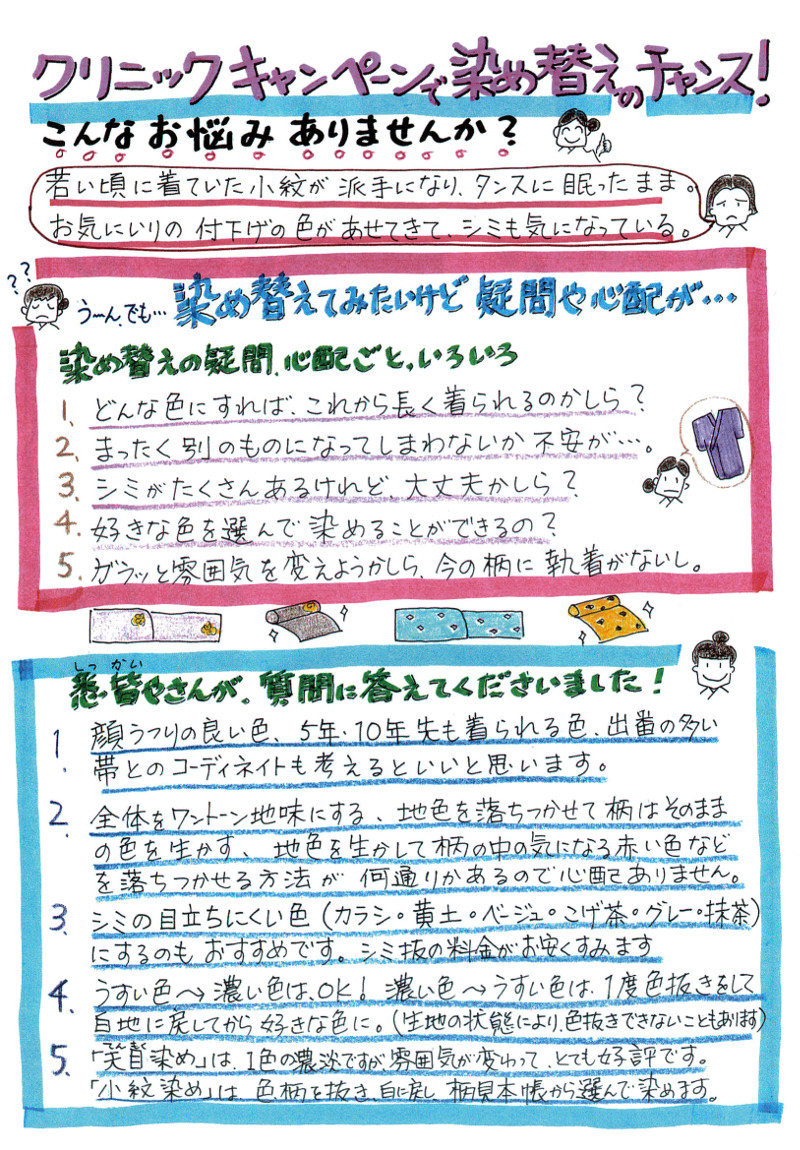 クリニックキャンペーンで染め替えのチャンス!
こんなお悩みありませんか?
若い頃に着ていた小紋が派手になり、タンスに眠ったまま。
お気にいりの付下げの色があせてきて、シミも気になっている。
??
う〜ん、でも… 染め替えてみたいけど疑問や心配が…
染め替えの疑問、心配ごと、いろいろ
1、どんな色にすれば、これから長く着られるのかしら?
2、まったく別のものになってしまわないか不安が…。
3、シミがたくさんあるけれど、大丈夫かしら?
4、好きな色を選んで染めることができるの?
5、ガラッと雰囲気を変えようかしら、今の柄に執着がないし。
しっかい
悉皆やさんが、質問に答えてくださいました!
1、顔うつりの良い色、5年・10年先も着られる色、出番の多い
帯とのコーディネイトも考えるといいと思います。
2、全体をワントーン地味にする、地色を落ちつかせて柄はそのまま
の色を生かす、地色を生かして柄の中の気になる赤い色など
を落ちつかせる方法が何通りかあるので心配ありません。
3、シミの目立ちにくい色(カラシ・黄土・ベージュ・こげ茶・グレー・抹茶)
にするのもおすすめです。シミ抜の料金がお安くすみます
4、うすい色→濃い色は、OK! 濃い色→うすい色は、1度色抜きをして
白地に戻してから好きな色に。(生地の状態により、色抜きできないこともあります)
5、「天目染め」は、1色の濃淡ですが、雰囲気が変わって、とても好評です。
「小紋染め」は、色、柄を抜き、白に戻し、柄見本帳から選んで染めます。